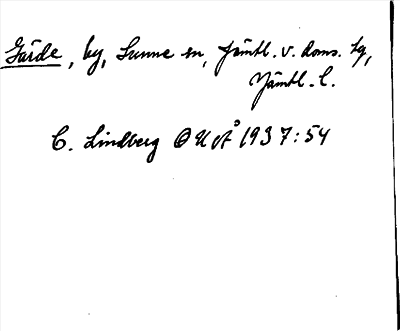 Gärde, by, Sunne sn, Jämtl. v. doms. tg,
Jämtl. l.
C. Lindberg OUÅ 1937:54